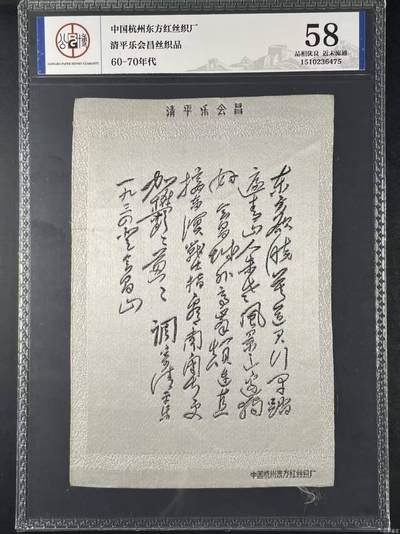 公博
中国杭州东方红丝织厂
清平乐会昌丝织品
60-70年代
58
品相优良 近未流通
1510236475
清平乐会昌
东方欲晓莫道君行早踏
遍青山人未老风景这边独
好会昌城外高峰颠连直
接东溟战士指看南粤更
加鬱々葱々 调寄清平乐
一九三四登会昌山
中国杭州东方红丝织厂